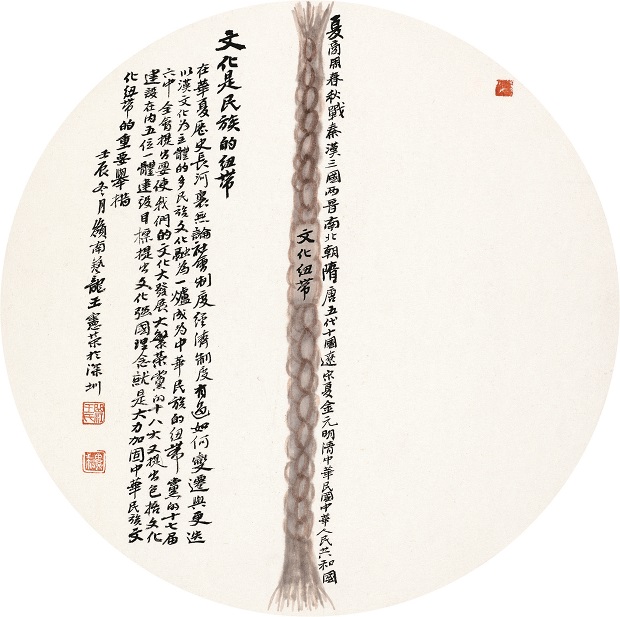 夏商周春秋戰秦漢三國兩晉南北朝隋唐五代十國遼宋夏金元明清中華民國中華人民共和國
文化紐帶
文化是民族的紐帶
在華夏歷史長河裏無論社會制度經濟制度有過如何變遷與更迭
以漢文化为主體的多民族文化融為一爐成為中華民族的紐帶黨的十七届
六中全會提出要使我們的文化大發展大繁榮黨的十八大又提出包括文化
建設在内五位一體建設目標提出文化强國理念就是大力加固中華民族文
化紐帶的重要舉措
壬辰冬月嶺南藝龍王憲榮於深圳